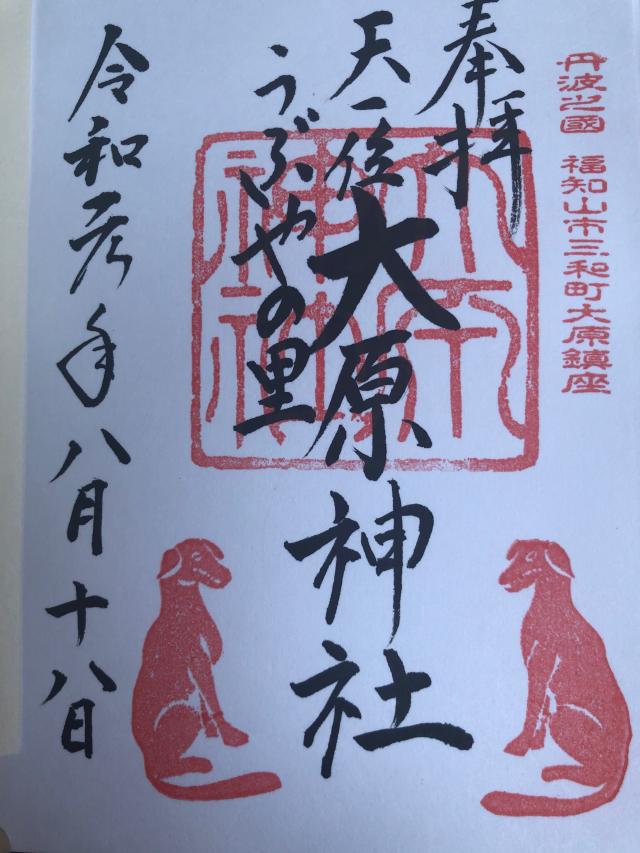 丹波之國 福知山市三和町大原鎮座
奉拝
天一位
大原神社
うぶやの里
令和元年八月十八日